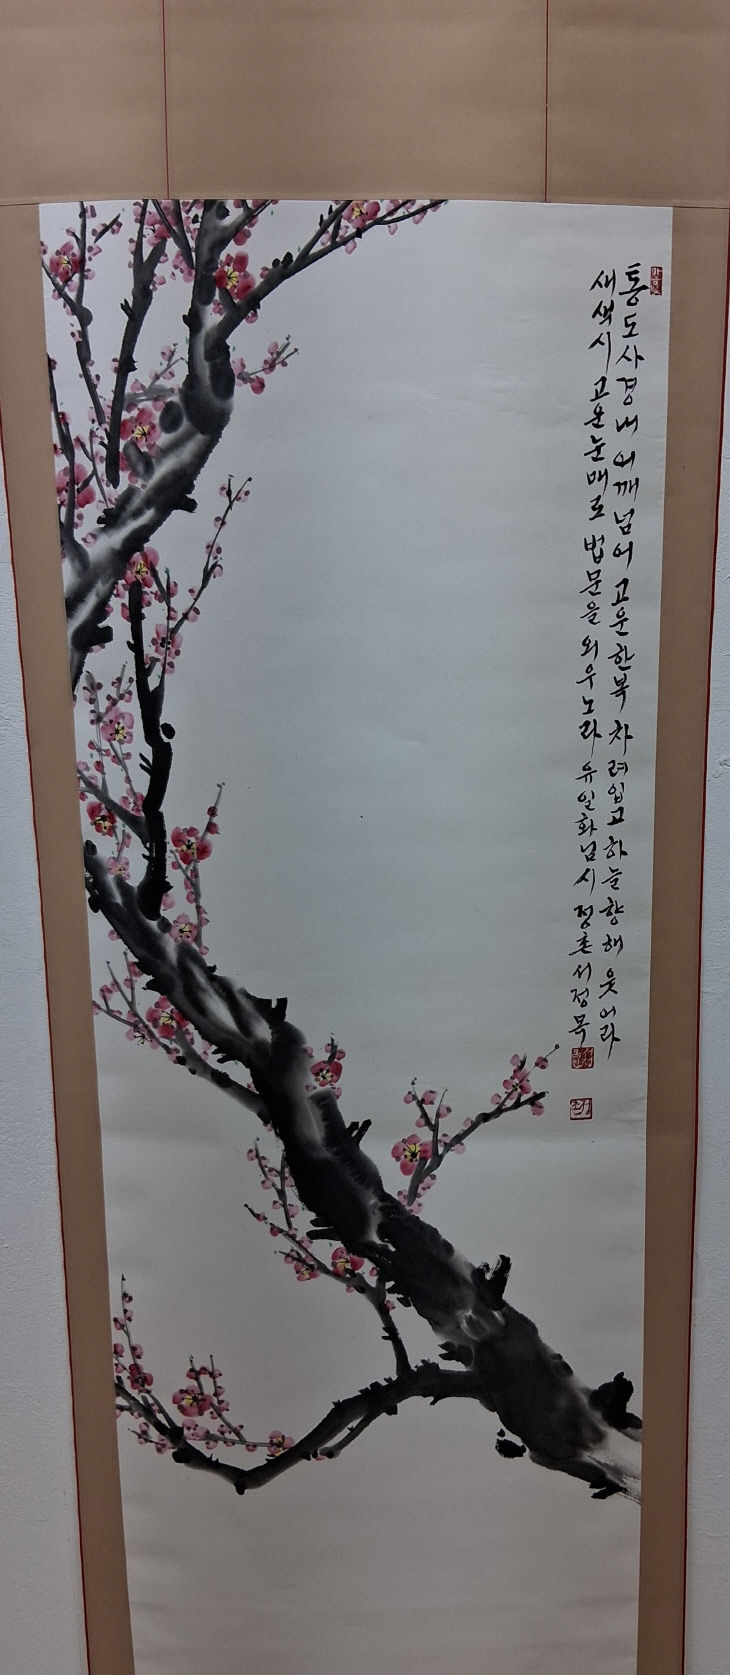 통도사 경내 어깨넘어 고운 한복 차려입고 하늘 향해 웃어라
새색시 고운 눈매로 법문을 외우노라 유일화님 시 정촌 서정목